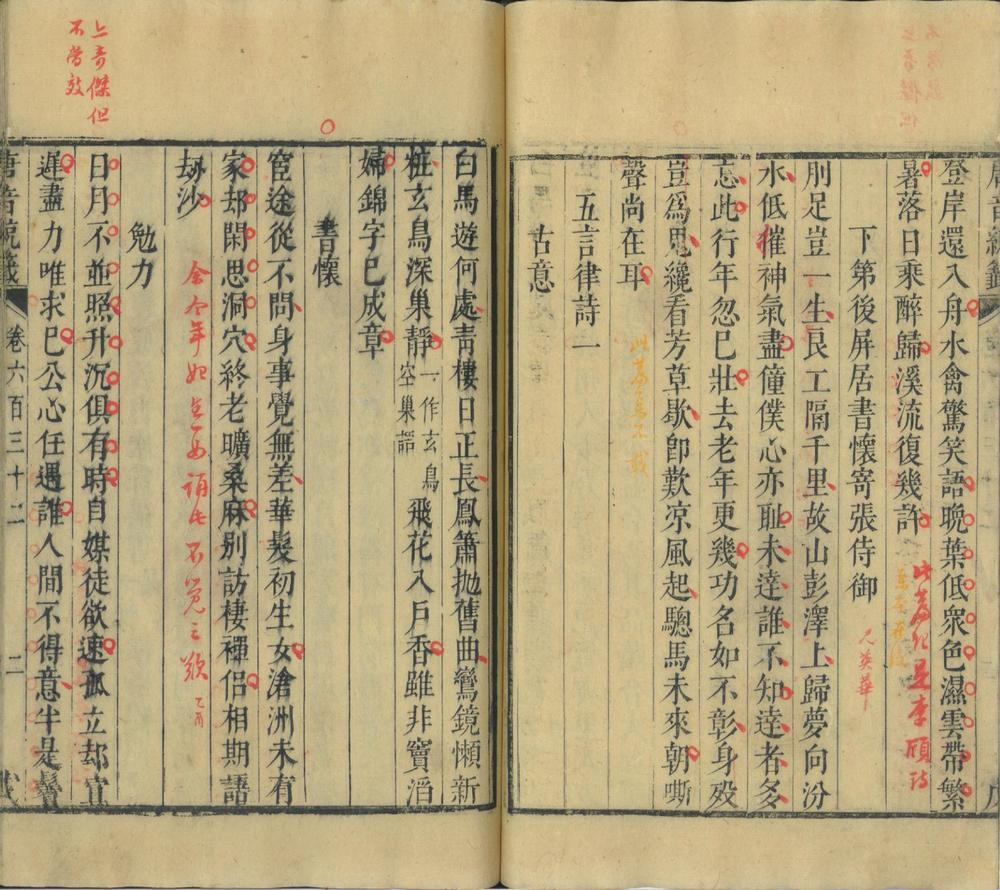 登岸還入舟水禽驚笑語晚葉低衆色濕雲帶繁
暑落日乘醉歸溪流復幾許
此篇但是李頎詩
下第後屏居書懷寄張侍御
見英華
刖足豈一生良工隔千里故山彭澤上歸夢向汾
水低摧神氣盡僮僕心亦耻未達誰不知達者多
忘此行年忽巳壯去老年更幾功名如不彰身歿
豈爲鬼纔看芳草歇卽歎凉風起驄馬未來朝嘶
聲尚在耳
五言律詩一
古意
白馬遊何處青樓日正長鳳簫抛舊曲鸞鏡懶新
粧玄鳥深巢靜一作玄鳥空巢語飛花入戸香雖非竇滔
婦錦字巳成章
書懷
宦途從不問身事覺無差華髮初生女滄洲未有
家却閑思洞穴終老曠桑麻别訪棲禪侣相期語
劫沙
余今年始生女誦此不覺三歎乙酉
勉力
日月不並照升沉俱有時自媒徒欲速孤立却宜
遲盡力唯求巳公心任遇誰人間不得意半是鬢
唐音統籖
卷六百三十二
二
上奇傑但
不當效